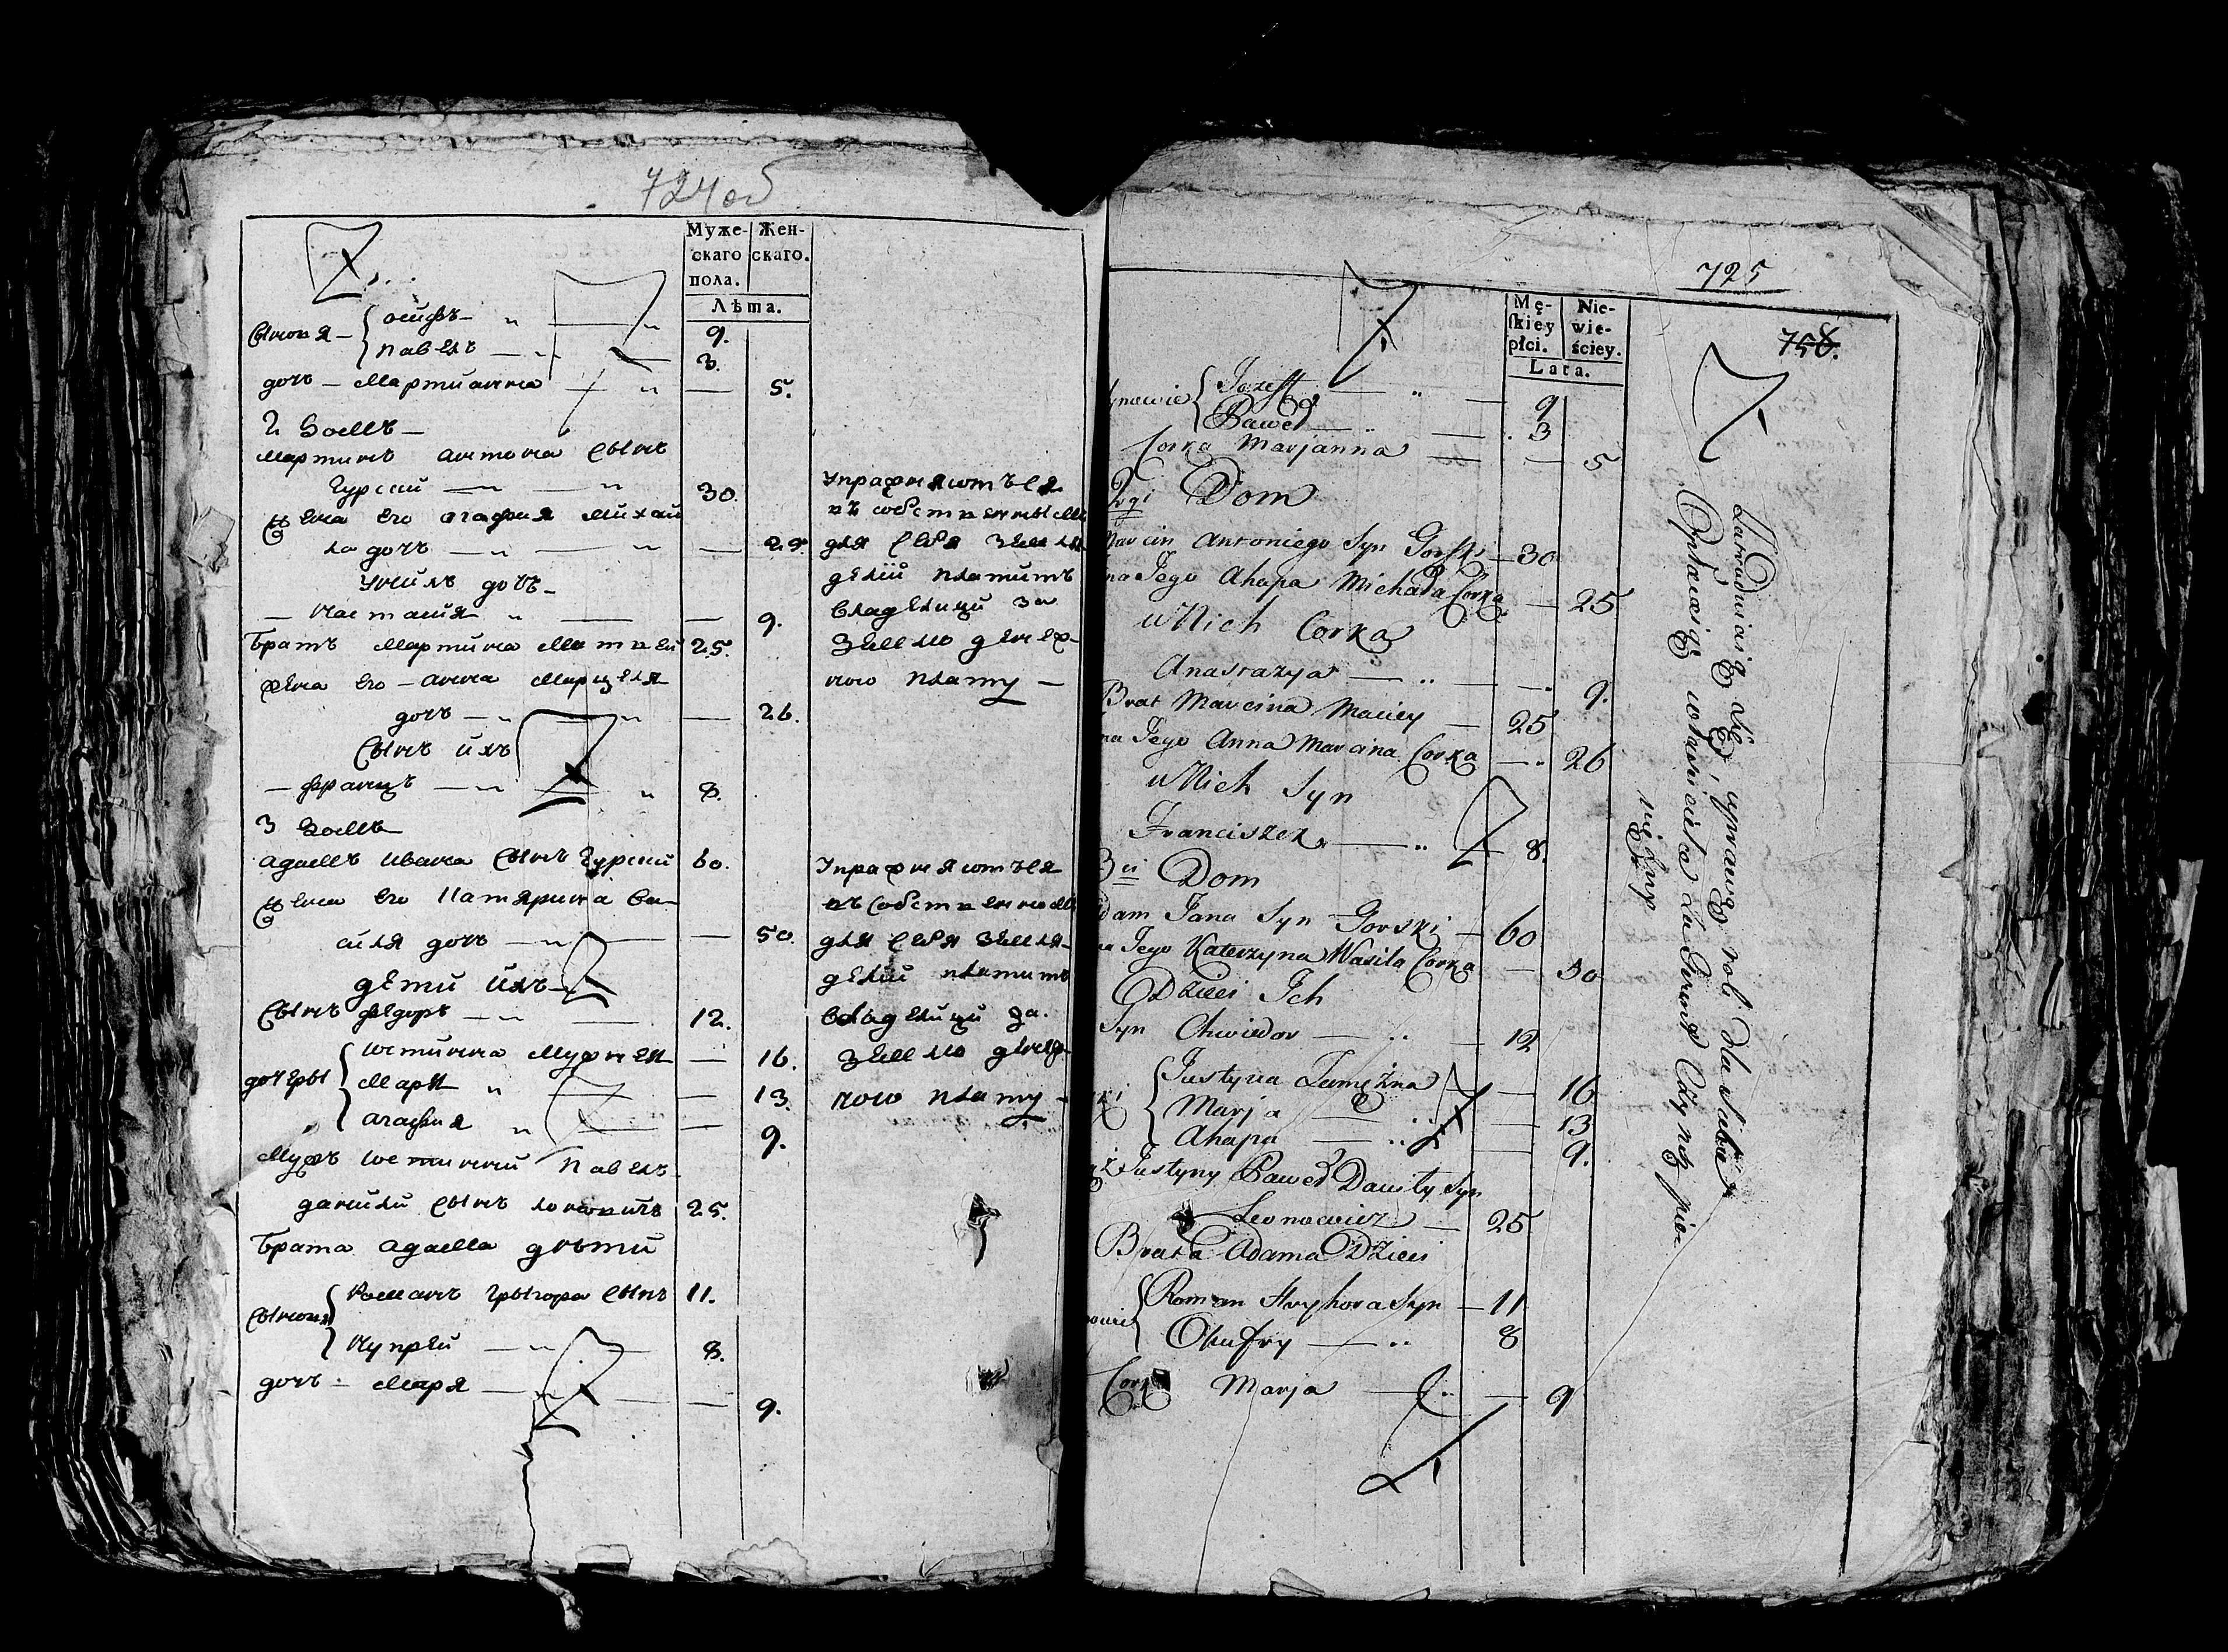 724об
Муже-
скаго
пола.
Жен-
скаго.
Лѣта.
Сынови {осифъ — „ — „
9.
павелъ — „ —
3.
дочь — Мартианна — „ —
5.
2 Домъ —
Мартинъ антона сынъ
Гурский — „ — „
30.
Жена его агафия Михай
ла дочь — „ — „ —
Унихъ дочь —
— Настасия „ — —
9.
Братъ Мартина Матвей
25.
Жена его — анна Марцеля
дочь — „ — „ —
26.
Сынъ ихъ
— францъ — „ — „
8.
3 Домъ
адамъ ивана сынъ Гурский
60.
Жена его Катярина Ва-
силя дочь — „ — —
50.
дети ихъ —
Сынъ федоръ — „ —
12.
дочеры {юстинна Мужнея —
16.
Маря „ — —
13.
агафия „ — —
9.
Мужъ юстинни павелъ
данили сынъ леонович
25.
Брата адама дѣти
Сынови {Романъ Грыгора сынъ
11.
Купрей — „ —
8.
дочь — Маря — „ — —
9.
Упражняютъся
въ собственнымъ
для себя земля
делии платитъ
владелицы за
землю денеж-
ною плату —
Упражняютъся
въ собственномъ
для себя земля-
делии платитъ
владелицы за
землю денеж-
ною плату —
725
758.
Mę-
skiey
płci.
Nie-
wie-
ściey.
Lata.
ynowie {Jozeff — „ —
9
Paweł — „ —
3
Corka Marjanna — —
5
2gi Dom
Marcin Antoniego Syn Gorski —
30
na Jego Ahapa Michała Corka —
25
u Nich Corka
Anastazya — „ — —
9.
Brat Marcina Maciey —
25
na Jego Anna Marcina Corka —
26
u Nich Syn
Franciszek — „ —
8.
3ci Dom
dam Jana Syn Gorski —
60
na Jego Katerzyna Wasila Corka —
50
Dzieci Ich
Syn Chwiedor — „ —
12
ki {Justyna Zamężna —
16
Marja — „ —
13
Ahapa — „ —
9.
ż Justyny Paweł Daniły Syn
Leonowicz —
25
Brata Adama Dzieci
owie {Roman Hryhora Syn —
11
Onufry — „
8
Corka Marja — „ —
9
Zatrudniaią się uprawą roli dla siebie
Opłacaią właścicielce za Grunt Czynsz pie
niężny